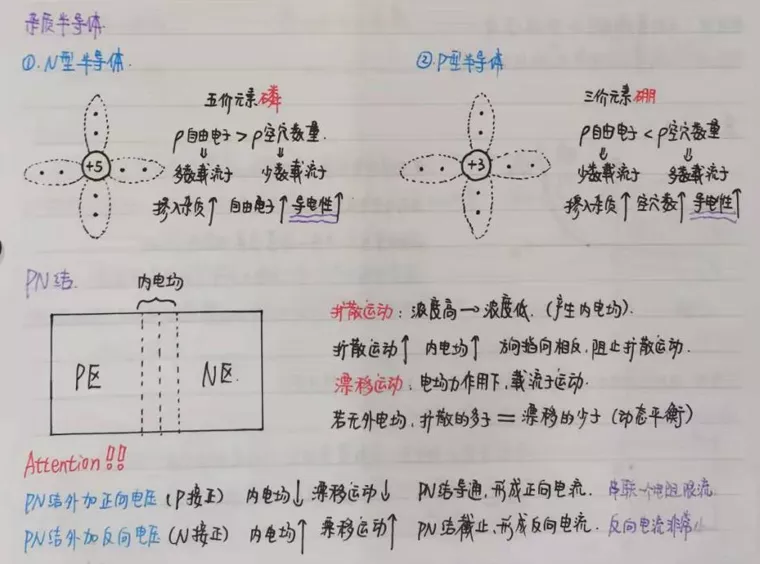 杂质半导体
①.N型半导体.
五价元素磷
ρ自由电子>ρ空穴数量.
⇓ ⇓
多数载流子 少数载流子
掺入杂质↑ 自由电子↑ 导电性↑
+5
②.P型半导体
三价元素硼
ρ自由电子<ρ空穴数量
⇓ ⇓
少数载流子 多数载流子
掺入杂质↑ 空穴数↑ 导电性↑
+3
PN结.
内电场
P区 N区.
扩散运动:浓度高→浓度低.(产生内电场).
扩散运动↑ 内电场↑ 方向指向相反,阻止扩散运动.
漂移运动:电场力作用下,载流子运动.
若无外电场,扩散的多子=漂移的少子(动态平衡)
Attention!!
PN结外加正向电压(P接正) 内电场↓ 漂移运动↓ PN结导通,形成正向电流. 串联一个电阻限流
PN结外加反向电压(N接正) 内电场↑ 漂移运动↑ PN结截止,形成反向电流. 反向电流非常小